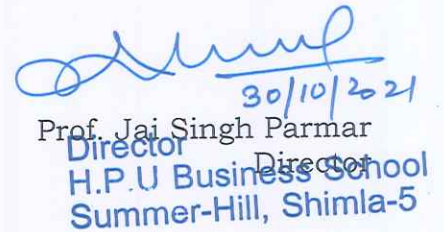 30/10/2021
Prof. Jai Singh Parmar
Director
Director
H.P.U Business School
Summer-Hill, Shimla-5